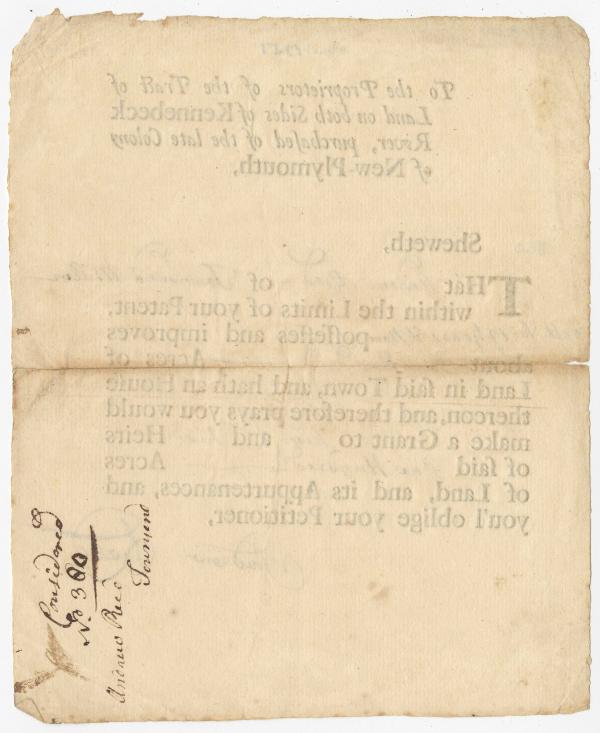 To the Proprietors of the Tract of
Land on both Sides of Kennebeck
River, purchaſed of the late Colony
of New-Plymouth,
Sheweth,
THat of
within the Limits of your Patent,
poſſeſſes and improves
about Acres of
Land in ſaid Town, and hath an Houſe
thereon, and therefore prays you would
make a Grant to and Heirs
of ſaid Acres
of Land, and its Appurtenances, and
you'l oblige your Petitioner,
Considered
No 380
Andrew Reed
Townsend